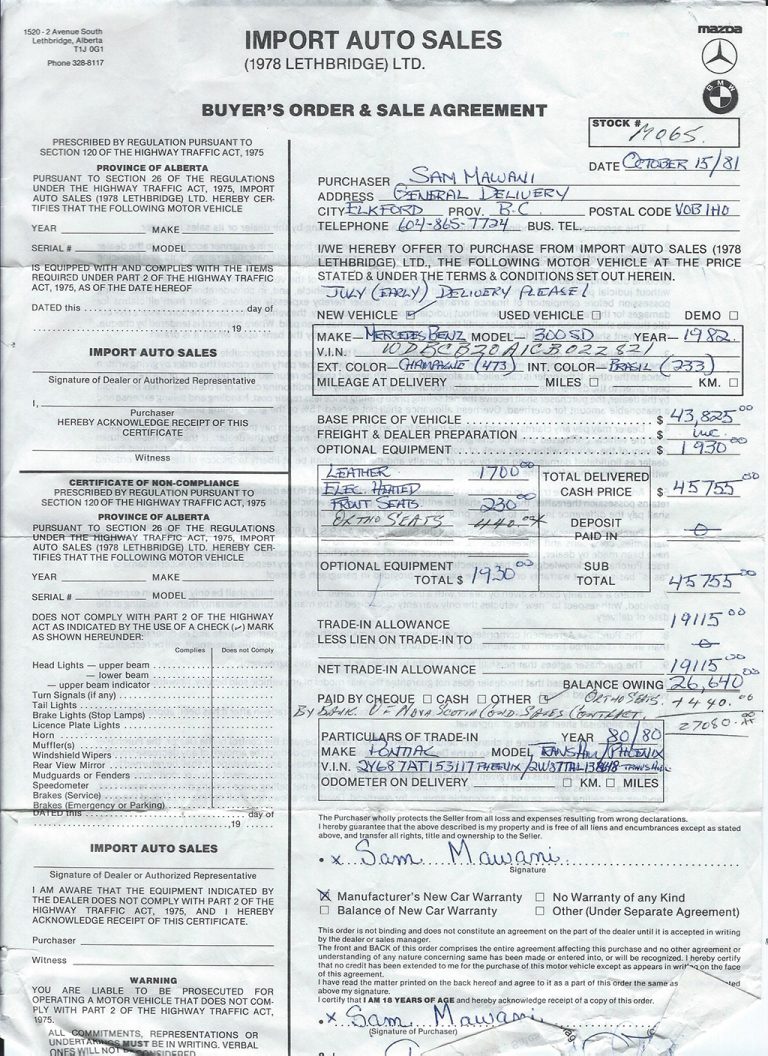 1520 - 2 Avenue South
Lethbridge, Alberta
T1J 0G1
Phone 328-8117
IMPORT AUTO SALES
(1978 LETHBRIDGE) LTD.
mazda
BMW
BUYER'S ORDER & SALE AGREEMENT
STOCK # M065.
PRESCRIBED BY REGULATION PURSUANT TO
SECTION 120 OF THE HIGHWAY TRAFFIC ACT, 1975
PROVINCE OF ALBERTA
PURSUANT TO SECTION 26 OF THE REGULATIONS
UNDER THE HIGHWAY TRAFFIC ACT, 1975, IMPORT
AUTO SALES (1978 LETHBRIDGE) LTD. HEREBY CER-
TIFIES THAT THE FOLLOWING MOTOR VEHICLE
YEAR MAKE
SERIAL # MODEL
IS EQUIPPED WITH AND COMPLIES WITH THE ITEMS
REQUIRED UNDER PART 2 OF THE HIGHWAY TRAFFIC
ACT, 1975, AS OF THE DATE HEREOF
DATED this day of
, 19
IMPORT AUTO SALES
Signature of Dealer or Authorized Representative
I,
Purchaser
HEREBY ACKNOWLEDGE RECEIPT OF THIS
CERTIFICATE
Witness
CERTIFICATE OF NON-COMPLIANCE
PRESCRIBED BY REGULATION PURSUANT TO
SECTION 120 OF THE HIGHWAY TRAFFIC ACT, 1975
PROVINCE OF ALBERTA
PURSUANT TO SECTION 26 OF THE REGULATIONS
UNDER THE HIGHWAY TRAFFIC ACT, 1975, IMPORT
AUTO SALES (1978 LETHBRIDGE) LTD. HEREBY CER-
TIFIES THAT THE FOLLOWING MOTOR VEHICLE
YEAR MAKE
SERIAL # MODEL
DOES NOT COMPLY WITH PART 2 OF THE HIGHWAY TRAFFIC
ACT AS INDICATED BY THE USE OF A CHECK (✓) MARK
AS SHOWN HEREUNDER:
Complies Does not Comply
Head Lights — upper beam
— lower beam
— upper beam indicator
Turn Signals (if any)
Tail Lights
Brake Lights (Stop Lamps)
Licence Plate Lights
Horn
Muffler(s)
Windshield Wipers
Rear View Mirror
Mudguards or Fenders
Speedometer
Brakes (Service)
Brakes (Emergency or Parking)
DATED this day of
,19
IMPORT AUTO SALES
Signature of Dealer or Authorized Representative
I AM AWARE THAT THE EQUIPMENT INDICATED BY
THE DEALER DOES NOT COMPLY WITH PART 2 OF THE
HIGHWAY TRAFFIC ACT, 1975, AND I HEREBY
ACKNOWLEDGE RECEIPT OF THIS CERTIFICATE.
Purchaser
Witness
WARNING
YOU ARE LIABLE TO BE PROSECUTED FOR
OPERATING A MOTOR VEHICLE THAT DOES NOT COM-
PLY WITH PART 2 OF THE HIGHWAY TRAFFIC ACT,
1975.
ALL COMMITMENTS, REPRESENTATIONS OR
UNDERTAKINGS MUST BE IN WRITING. VERBAL
ONES WILL NOT BE CONSIDERED.
DATE OCTOBER 15/81
PURCHASER SAM MAWANI
ADDRESS GENERAL DELIVERY
CITY ELKFORD PROV. B.C. POSTAL CODE V0B 1H0
TELEPHONE 604-865-7724 BUS. TEL.
I/WE HEREBY OFFER TO PURCHASE FROM IMPORT AUTO SALES (1978
LETHBRIDGE) LTD., THE FOLLOWING MOTOR VEHICLE AT THE PRICE
STATED & UNDER THE TERMS & CONDITIONS SET OUT HEREIN.
JULY (EARLY) DELIVERY PLEASE!
NEW VEHICLE ☑ USED VEHICLE ☐ DEMO ☐
MAKE— MERCEDES BENZ MODEL— 300SD YEAR— 1982
V.I.N. WDBCB20A1CB022821
EXT. COLOR— CHAMPAGNE (473) INT. COLOR— BRASIL (233)
MILEAGE AT DELIVERY MILES ☐ KM. ☐
BASE PRICE OF VEHICLE $ 43,825.00
FREIGHT & DEALER PREPARATION $ inc.
OPTIONAL EQUIPMENT $ 1930.00
LEATHER 1700.00
ELEC. HEATED
FRONT SEATS 230.00
ORTHO SEATS 440.00
TOTAL DELIVERED
CASH PRICE $ 45755.00
DEPOSIT
PAID IN 0
OPTIONAL EQUIPMENT
TOTAL $ 1930.00
SUB
TOTAL 45755.00
TRADE-IN ALLOWANCE 19115.00
LESS LIEN ON TRADE-IN TO 0
NET TRADE-IN ALLOWANCE 19115.00
BALANCE OWING 26,640.00
PAID BY CHEQUE ☐ CASH ☐ OTHER ☑ ORTHO SEATS. +440.00
BY BANK OF NOVA SCOTIA COND. SALES CONTRACT. 27080.00
PARTICULARS OF TRADE-IN YEAR 80/80
MAKE PONTIAC MODEL TRANS AM/PHOENIX
V.I.N. 2Y687AT153117 PHOENIX/ TRANS AM
ODOMETER ON DELIVERY ☐ KM. ☐ MILES
The Purchaser wholly protects the Seller from all loss and expenses resulting from wrong declarations.
I hereby guarantee that the above described is my property and is free of all liens and encumbrances except as stated
above, and transfer all rights, title and ownership to the Seller.
x Sam Mawani
Signature
☒ Manufacturer's New Car Warranty ☐ No Warranty of any Kind
☐ Balance of New Car Warranty ☐ Other (Under Separate Agreement)
This order is not binding and does not constitute an agreement on the part of the dealer until it is accepted in writing
by the dealer or sales manager.
The front and BACK of this order comprises the entire agreement affecting this purchase and no other agreement or
understanding of any nature concerning same has been made or entered into, or will be recognized. I hereby certify
that no credit has been extended to me for the purchase of this motor vehicle except as appears in writing on the face
of this agreement.
I have read the matter printed on the back hereof and agree to it as a part of this order the same as
above my signature.
I certify that I AM 18 YEARS OF AGE and hereby acknowledge receipt of a copy of this order.
x Sam Mawani
(Signature of Purchaser)